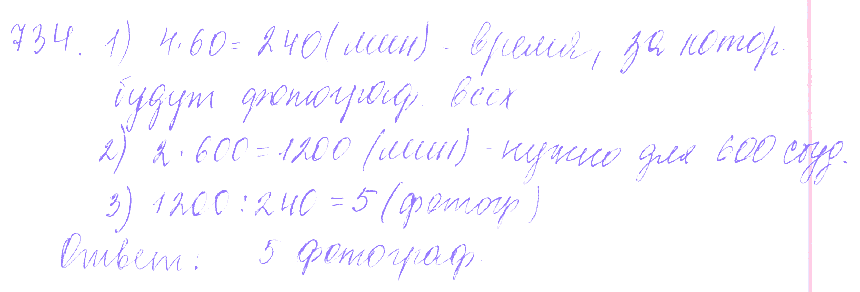 734. 1) 4·60 = 240 (мин) - время, за котор
будут фотограф. всех
2) 2·600 = 1200 (мин) - нужно для 600 студ.
3) 1200 : 240 = 5 (фотогр)
Ответ: 5 фотограф.